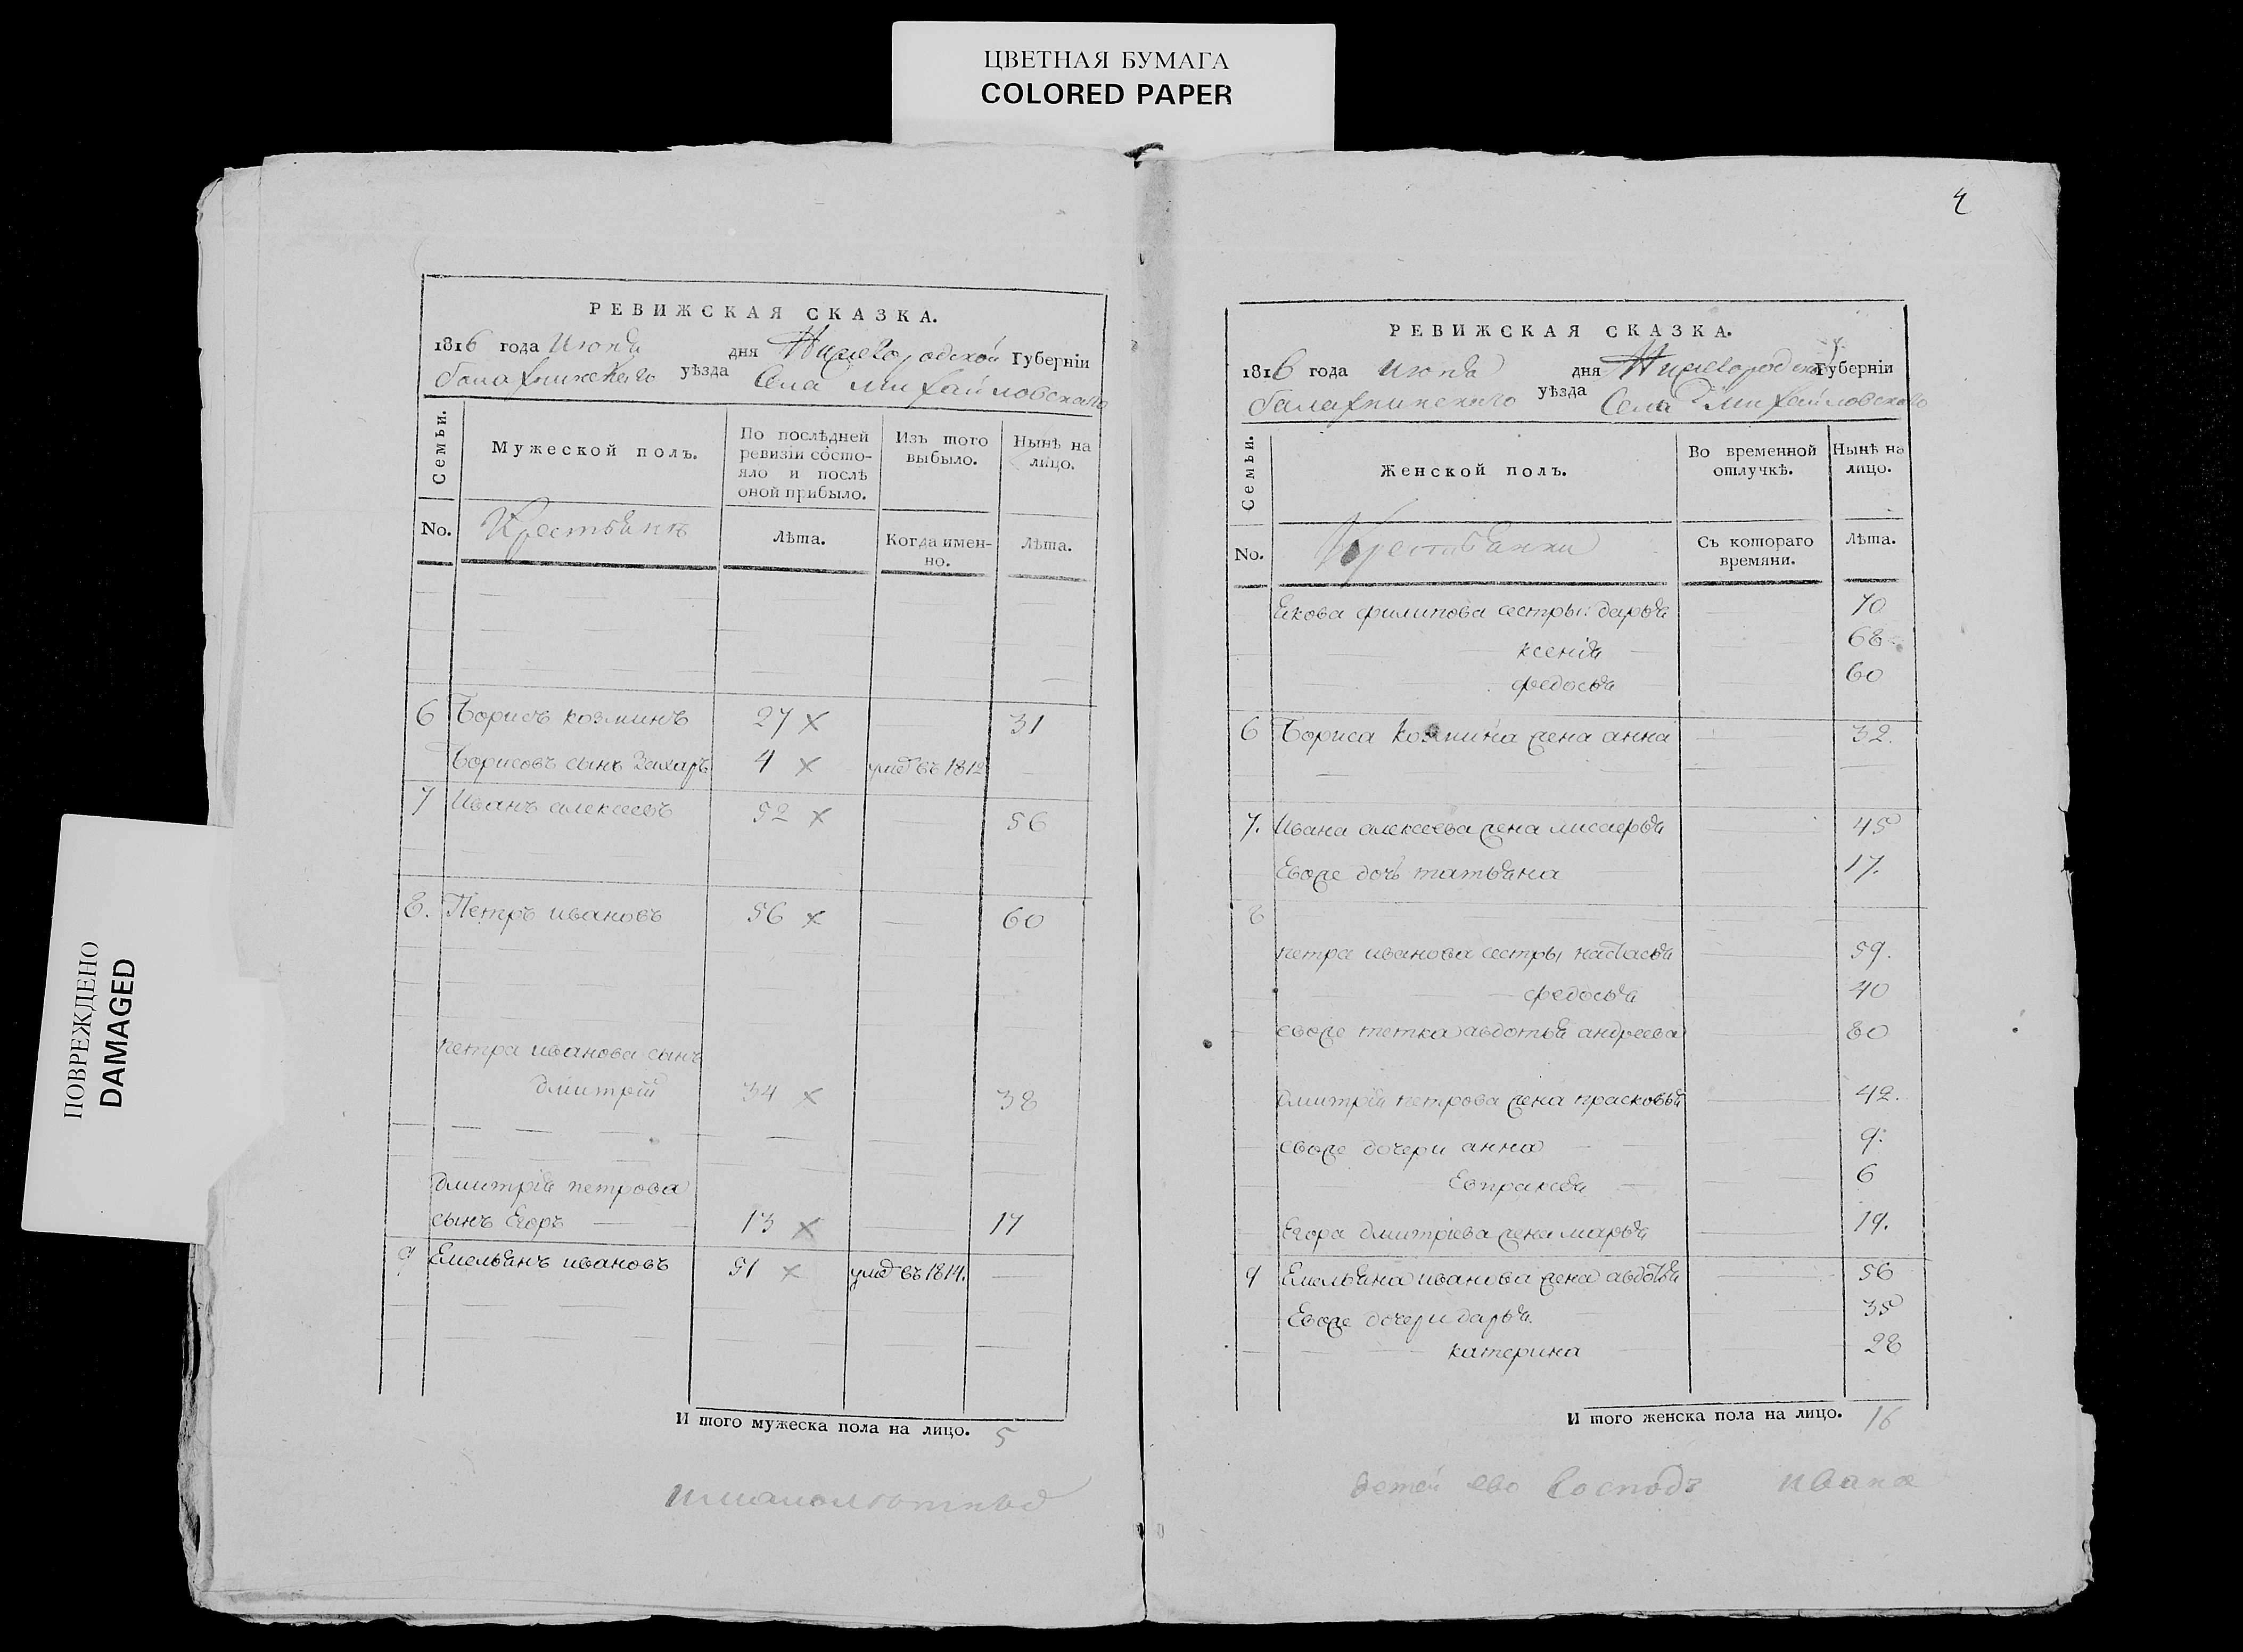 ЦВЕТНАЯ БУМАГА
COLORED PAPER
ПОВРЕЖДЕНО
DAMAGED
РЕВИЖСКАЯ СКАЗКА.
1816 года Июня дня Нижегородской Губернїи
балахнинскаго уѣзда Села михайловскаго
Семьи.
Мужеской полъ.
По послѣдней ревизїи состо-яло и послѣ оной прибыло.
Изъ того выбыло.
Нынѣ на лицо.
No. Крестьянъ Лѣта. Когда имен-но. Лѣта.
6 Борисъ козминъ 27 × 31
Борисовъ сынъ Захаръ 4 × умеръ въ 1812
7 Иванъ алексеевъ 52 × 56
8. Петръ ивановъ 56 × 60
петра иванова сынъ
дмитрїй 34 × 38
дмитрїя петрова
сынъ Егоръ 13 × 17
9 Емельянъ ивановъ 51 × умре въ 1814.
И того мужеска пола на лицо. 5
4
РЕВИЖСКАЯ СКАЗКА.
1816 года Июня дня Нижегородской Губернїи
балахнинскаго уѣзда Села михайловскаго
Семьи.
Женской полъ.
Во временной отлучкѣ.
Нынѣ на лицо.
No. Крестьянки Съ котораго времяни. Лѣта.
Якова филипова сестры: дарья 70
ксенїя 68
федосья 60
6 Бориса козмина жена анна 32.
7. Ивана алексеева жена 45
Евоже дочь татьяна 17.
8
петра иванова сестры настасья 59.
федосья 40
евоже тетка авдотья андреева 80
дмитрїя петрова жена прасковья 42.
евоже дочери анна 9.
Евпраксея 6
Егора дмитрїева жена марья 19.
9 Емельяна иванова жена авдотья 56
Евоже дочери дарья 35
катерина 28
И того женска пола на лицо. 16
детей ево Господъ ивана